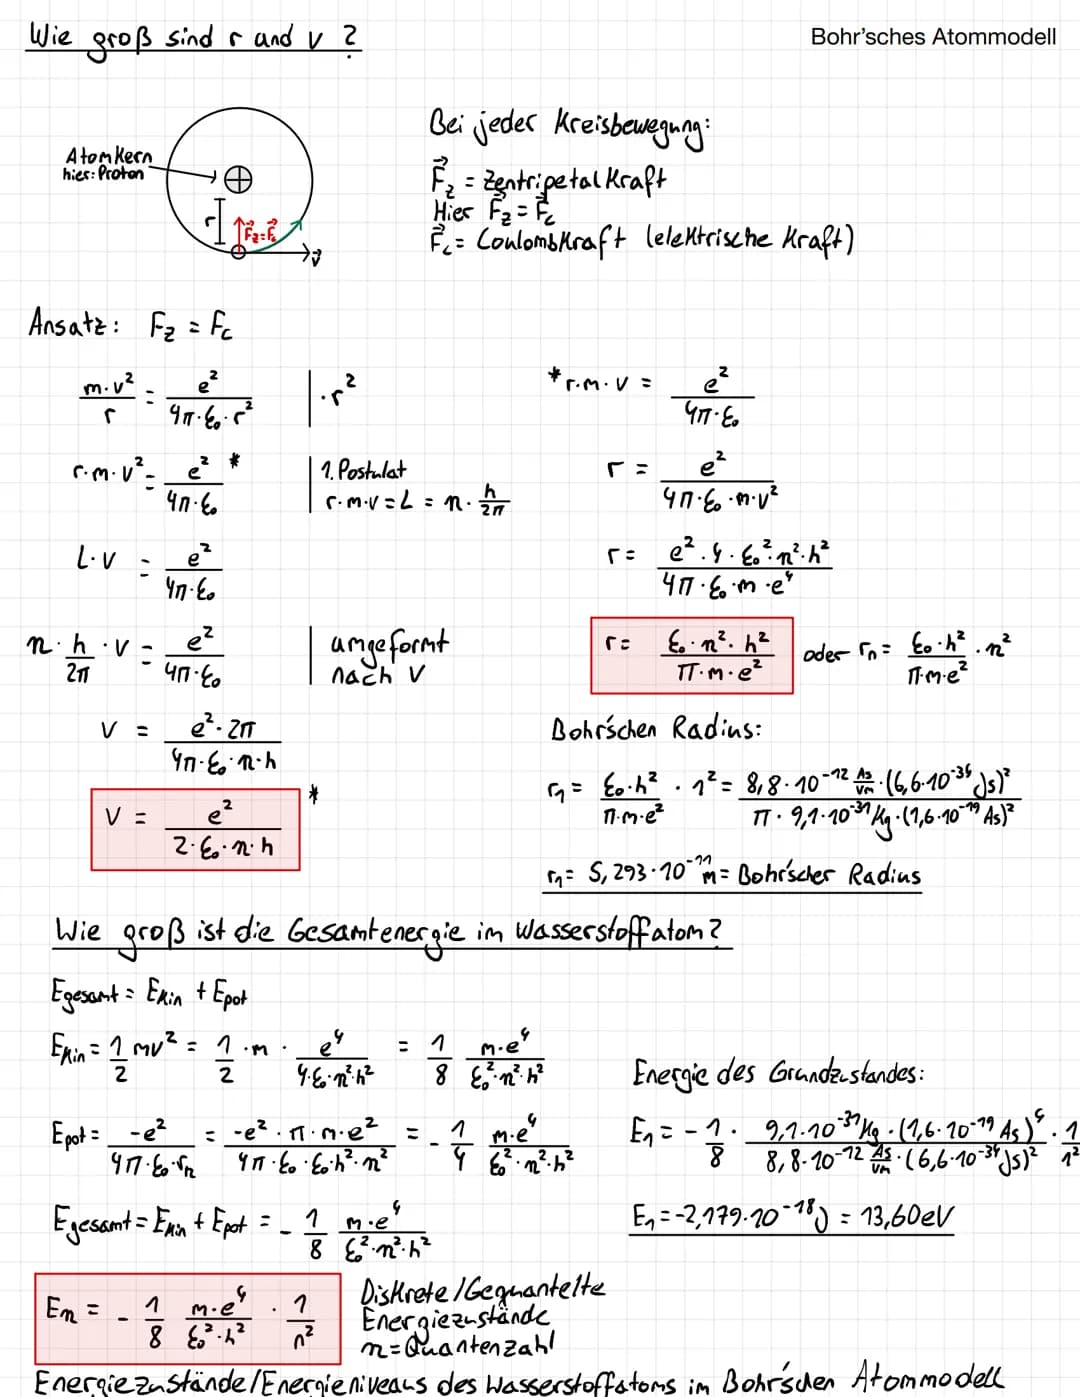 Wie groß sind r und v ?
Bohr'sches Atommodell
Atomkern
hier: Proton
r
F⃗z=F⃗c
v⃗
Bei jeder Kreisbewegung:
F⃗z = Zentripetalkraft
Hier F⃗z = F⃗c
F⃗c = Coulombkraft (elektrische Kraft)
Ansatz: Fz = Fc
m·v²/r = e²/(4π·ε₀·r²) | ·r²
r·m·v² = e²/(4π·ε₀) * | 1. Postulat r·m·v = L = n·h/2π
L·v = e²/(4π·ε₀)
n·h/2π·v = e²/(4π·ε₀) | umgeformt nach v
v = e²·2π/(4π·ε₀·n·h)
v = e²/(2·ε₀·n·h) *
*r·m·v = e²/(4π·ε₀)
r = e²/(4π·ε₀·m·v²)
r = e²·4·ε₀²·n²·h²/(4π·ε₀·m·e⁴)
r = ε₀·n²·h²/(π·m·e²) oder rn = ε₀·h²/(π·m·e²) · n²
Bohr'schen Radius:
r₁ = ε₀·h²/(π·m·e²) · 1² = 8,8·10⁻¹² As/Vm·(6,6·10⁻³⁴ Js)²/(π·9,1·10⁻³¹ kg·(1,6·10⁻¹⁹ As)²)
r₁ = 5,293·10⁻¹¹ m = Bohr'scher Radius
Wie groß ist die Gesamtenergie im Wasserstoffatom?
Egesamt = Ekin + Epot
Ekin = 1/2 mv² = 1/2 · m · e⁴/(4·ε₀²·n²·h²) = 1/8 m·e⁴/(ε₀²·n²·h²)
Epot = -e²/(4π·ε₀·rn) = -e²·π·m·e²/(4π·ε₀·ε₀·h²·n²) = - 1/4 m·e⁴/(ε₀²·n²·h²)
Egesamt = Ekin + Epot = - 1/8 m·e⁴/(ε₀²·n²·h²)
En = - 1/8 m·e⁴/(ε₀²·h²) · 1/n²
Diskrete/Gequantelte
Energiezustände
n=Quantenzahl
Energie des Grundzustandes:
E₁ = - 1/8 · 9,1·10⁻³¹ kg·(1,6·10⁻¹⁹ As)⁴/(8,8·10⁻¹² As/Vm·(6,6·10⁻³⁴ Js)²) · 1/1²
E₁ = -2,179·10⁻¹⁸ J = 13,60eV
Energiezustände/Energieniveaus des Wasserstoffatoms im Bohr'schen Atommodell